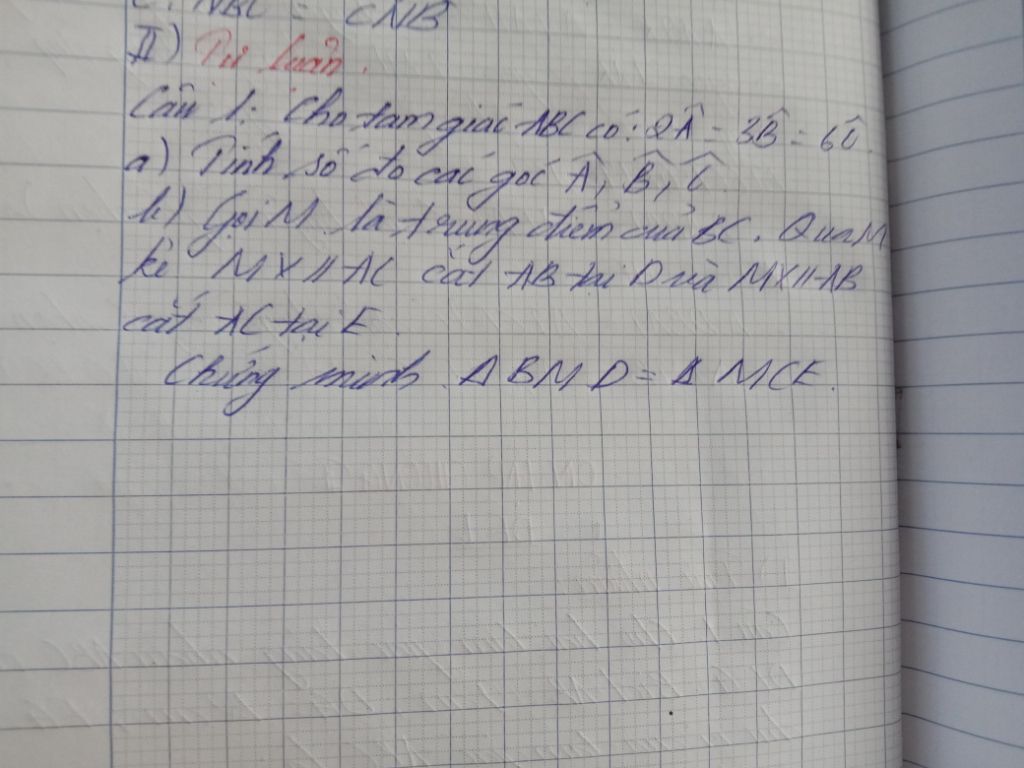 II) Tự luận.
Câu 1: Cho tam giác ABC có: 2Â = 3B̂ = 6Ĉ
a) Tính số đo các góc Â, B̂, Ĉ.
b) Gọi M là trung điểm của BC. Qua M
kẻ MX // AC cắt AB tại D và MX // AB
cắt AC tại E.
Chứng minh Δ BMD = Δ MCE.